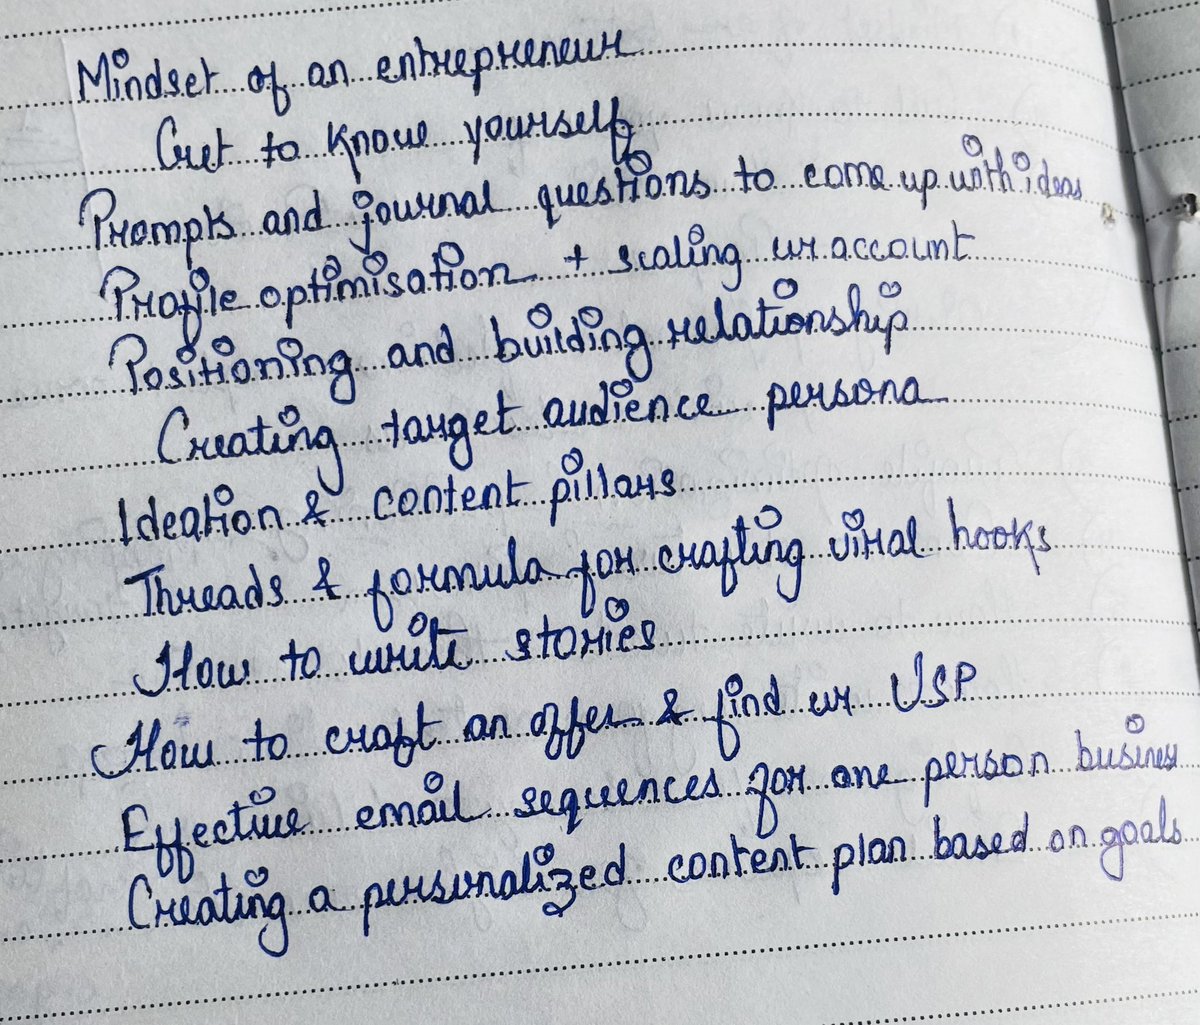 Mindset of an entrepreneur
Get to know yourself
Prompts and journal questions to come up with ideas
Profile optimisation + scaling ur account
Positioning and building relationship
Creating target audience persona
Ideation & content pillars
Threads & formula for crafting viral hooks
How to write stories
How to craft an offer & find ur USP
Effective email sequences for one person business
Creating a personalized content plan based on goals